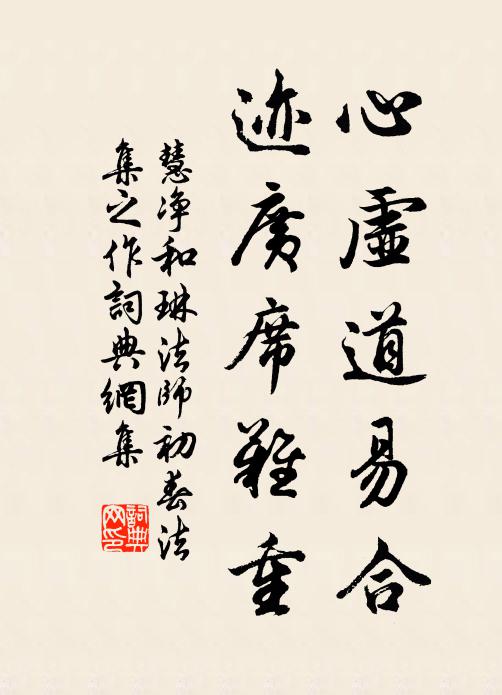 心虛道易合
迹廣席難重
慧净和琳法師初春法
集之作詞典網集
詞典
网印